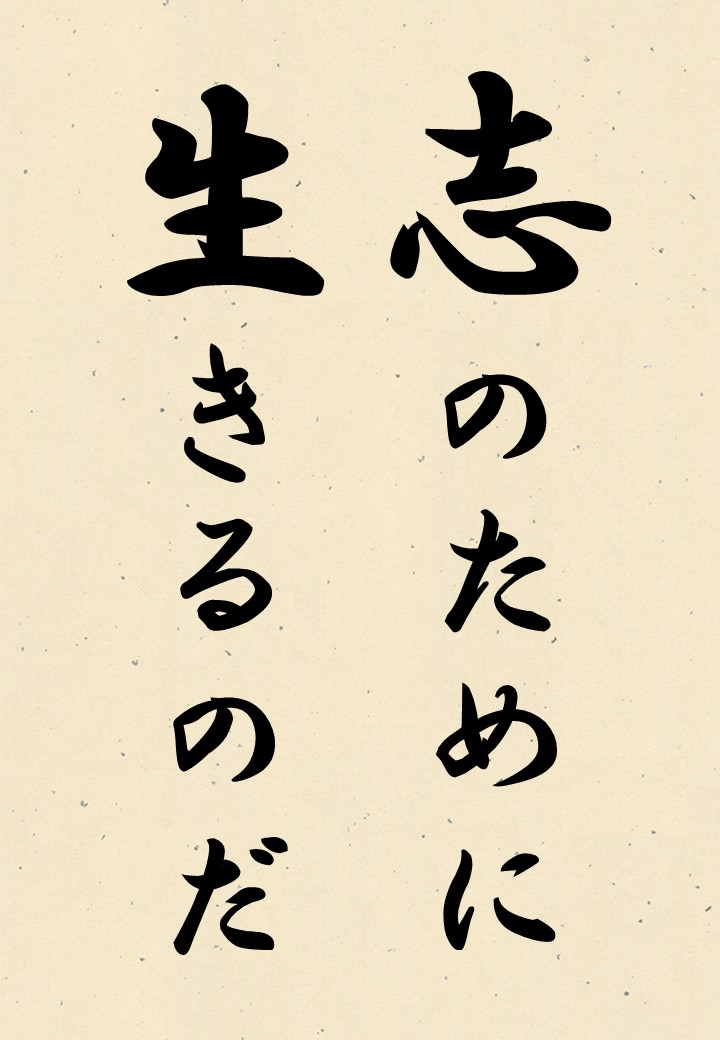 志のために
生きるのだ